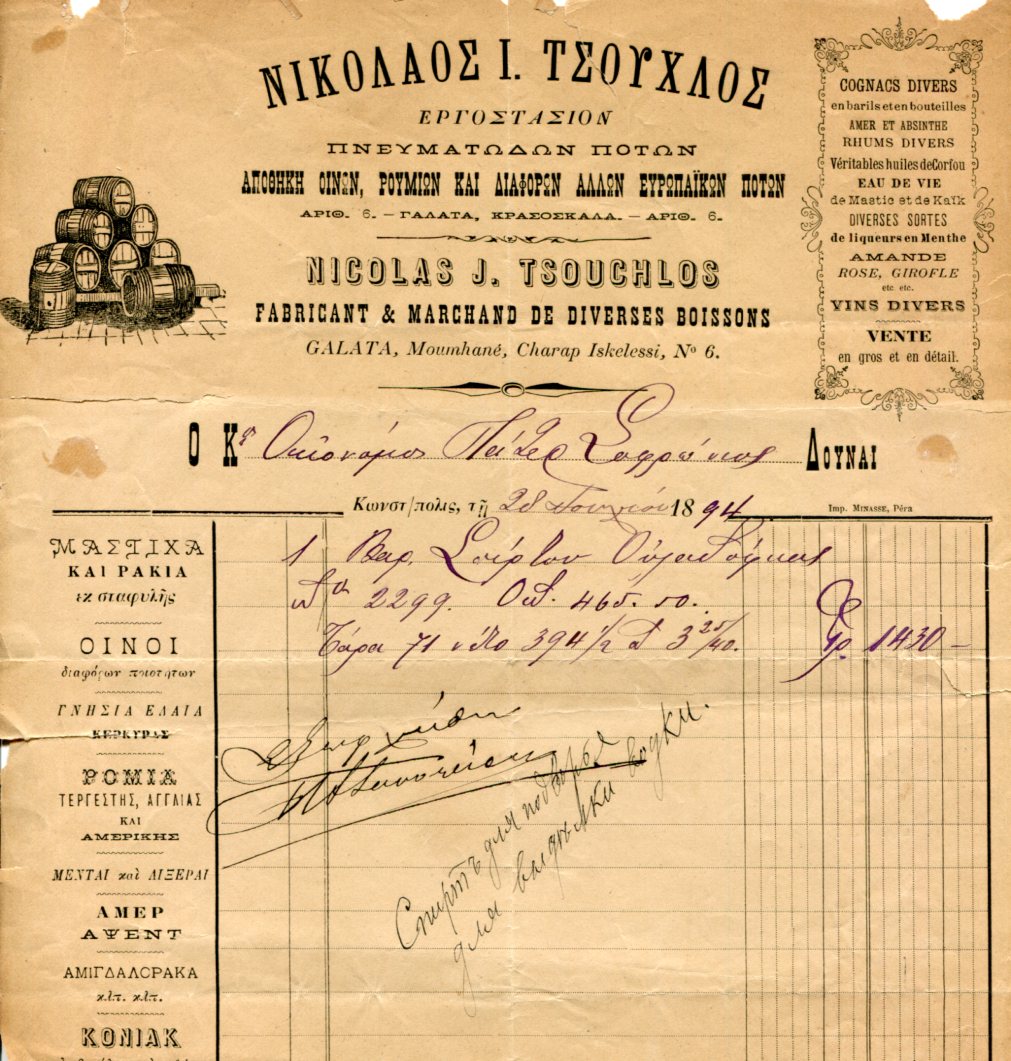 ΝΙΚΟΛΑΟΣ Ι. ΤΣΟΥΧΛΟΣ
ΕΡΓΟΣΤΑΣΙΟΝ
ΠΝΕΥΜΑΤΩΔΩΝ ΠΟΤΩΝ
ΑΠΟΘΗΚΗ ΟΙΝΩΝ, ΡΟΥΜΙΩΝ ΚΑΙ ΔΙΑΦΟΡΩΝ ΑΛΛΩΝ ΕΥΡΩΠΑΪΚΩΝ ΠΟΤΩΝ
ΑΡΙΘ. 6. – ΓΑΛΑΤΑ, ΚΡΑΣΟΣΚΑΛΑ. – ΑΡΙΘ. 6.
NICOLAS J. TSOUCHLOS
FABRICANT & MARCHAND DE DIVERSES BOISSONS
GALATA, Moumhané, Charap Iskelessi, Nº 6.
COGNACS DIVERS
en barils et en bouteilles
AMER ET ABSINTHE
RHUMS DIVERS
Véritables huiles de Corfou
EAU DE VIE
de Mastic et de Kaïk
DIVERSES SORTES
de liqueurs en Menthe
AMANDE
ROSE, GIROFLE
etc etc.
VINS DIVERS
VENTE
en gros et en détail.
Ο Κος Οἰκονόμος Πάτερ Σωφρόνιος ΔΟΥΝΑΙ
Κωνστ/πολις, τῇ 28 1894
Imp. MINASSE, Péra
1 Βαρ. Σπίρτου
2299. Οκ. 465. 50.
Τάρα 71 νέτο 394 1/2 3 25/40. Γρ. 1430 –
Спиртъ для
для водки.
ΜΑΣΤΙΧΑ
ΚΑΙ ΡΑΚΙΑ
ἐκ σταφυλῆς
ΟΙΝΟΙ
διαφόρων ποιοτήτων
ΓΝΗΣΙΑ ΕΛΑΙΑ
ΚΕΡΚΥΡΑΣ
ΡΟΜΙΑ
ΤΕΡΓΕΣΤΗΣ, ΑΓΓΛΙΑΣ
ΚΑΙ
ΑΜΕΡΙΚΗΣ
ΜΕΝΤΑΙ καὶ ΛΙΞΕΡΑΙ
ΑΜΕΡ
ΑΨΕΝΤ
ΑΜΙΓΔΑΛΟΡΑΚΑ
κ.λ.π. κ.λ.π.
ΚΟΝΙΑΚ